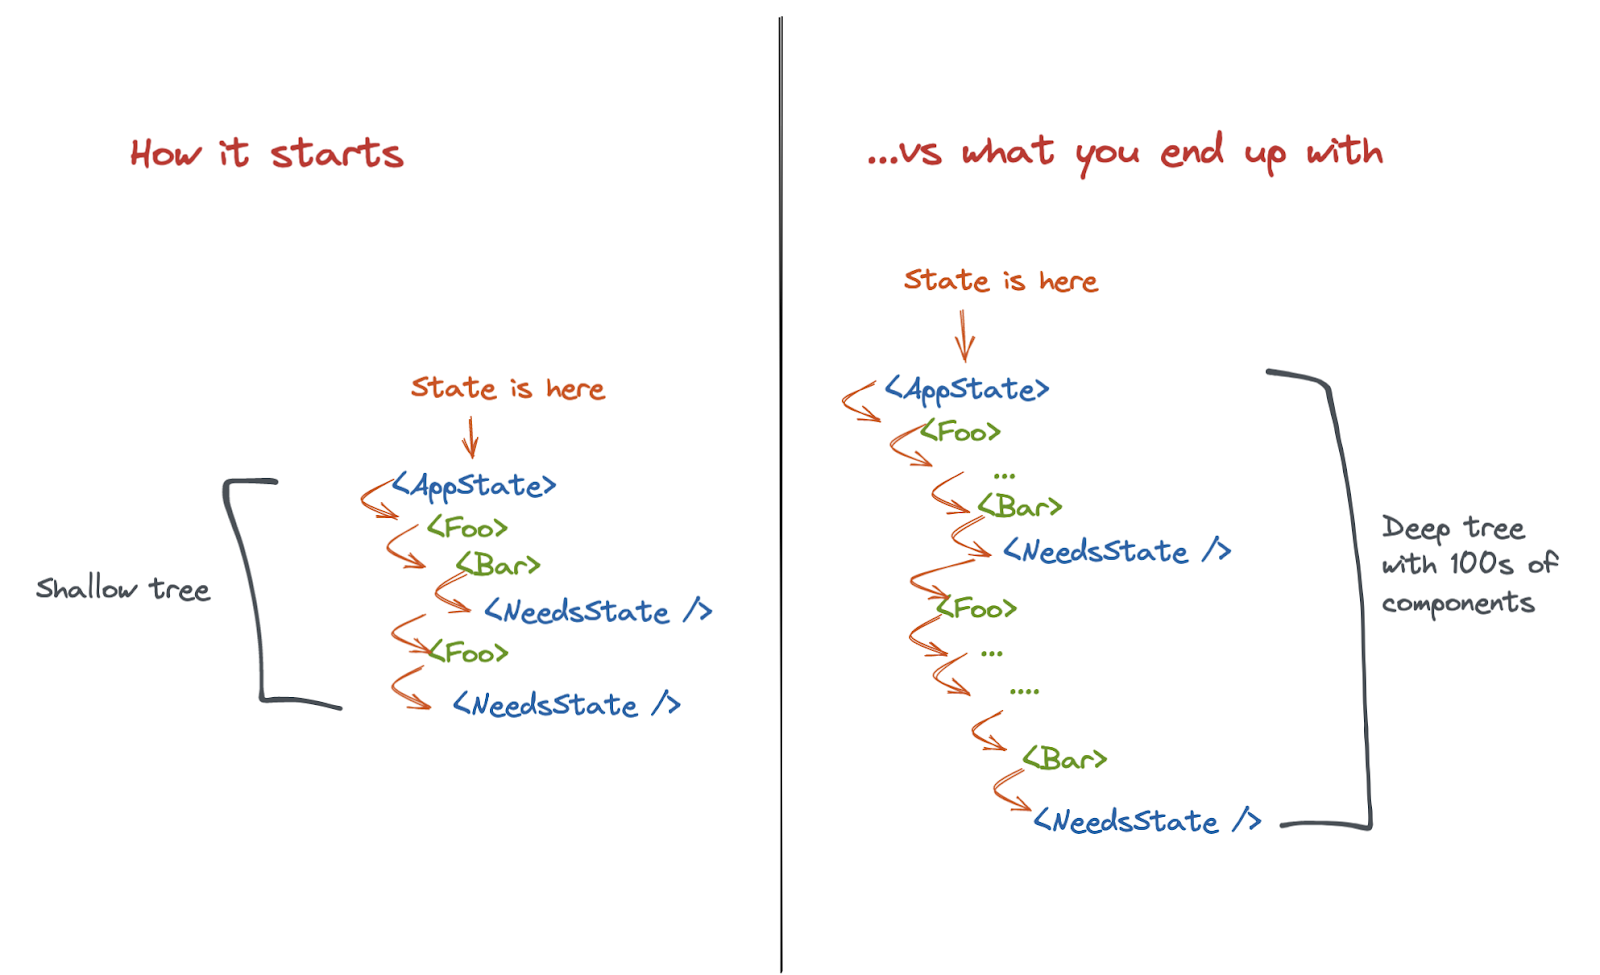 How it starts
State is here
<AppState>
<Foo>
<Bar>
<NeedsState />
<Foo>
<NeedsState />
Shallow tree
...vs what you end up with
State is here
<AppState>
<Foo>
...
<Bar>
<NeedsState />
<Foo>
...
....
<Bar>
<NeedsState />
Deep tree
with 100s of
components